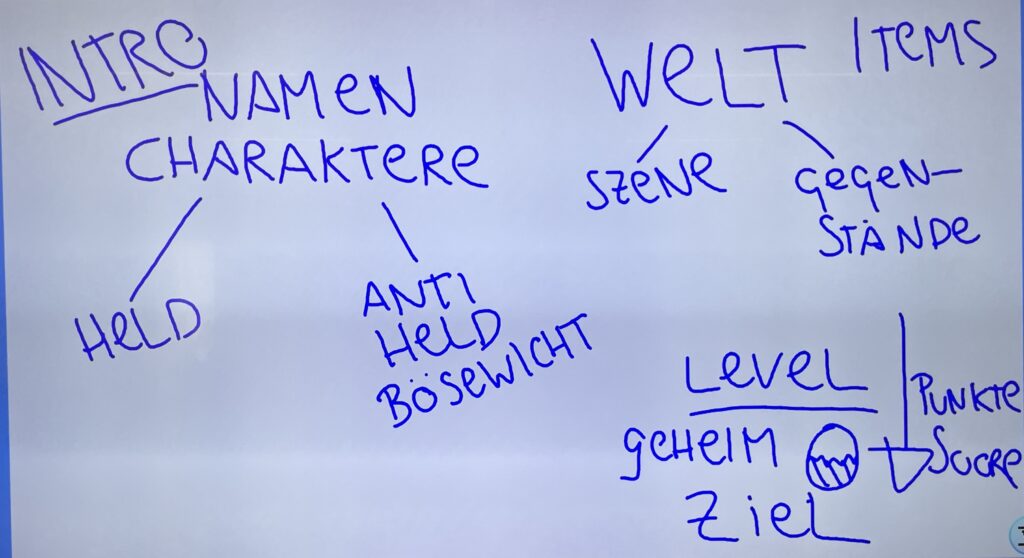 INTRO
NAMEN
CHARAKTERE
HELD
ANTI
HELD
BÖSEWICHT
WELT ITEMS
SZENE
GEGEN-
STÄNDE
LEVEL
GEHEIM
ZIEL
PUNKTE
SOCRE